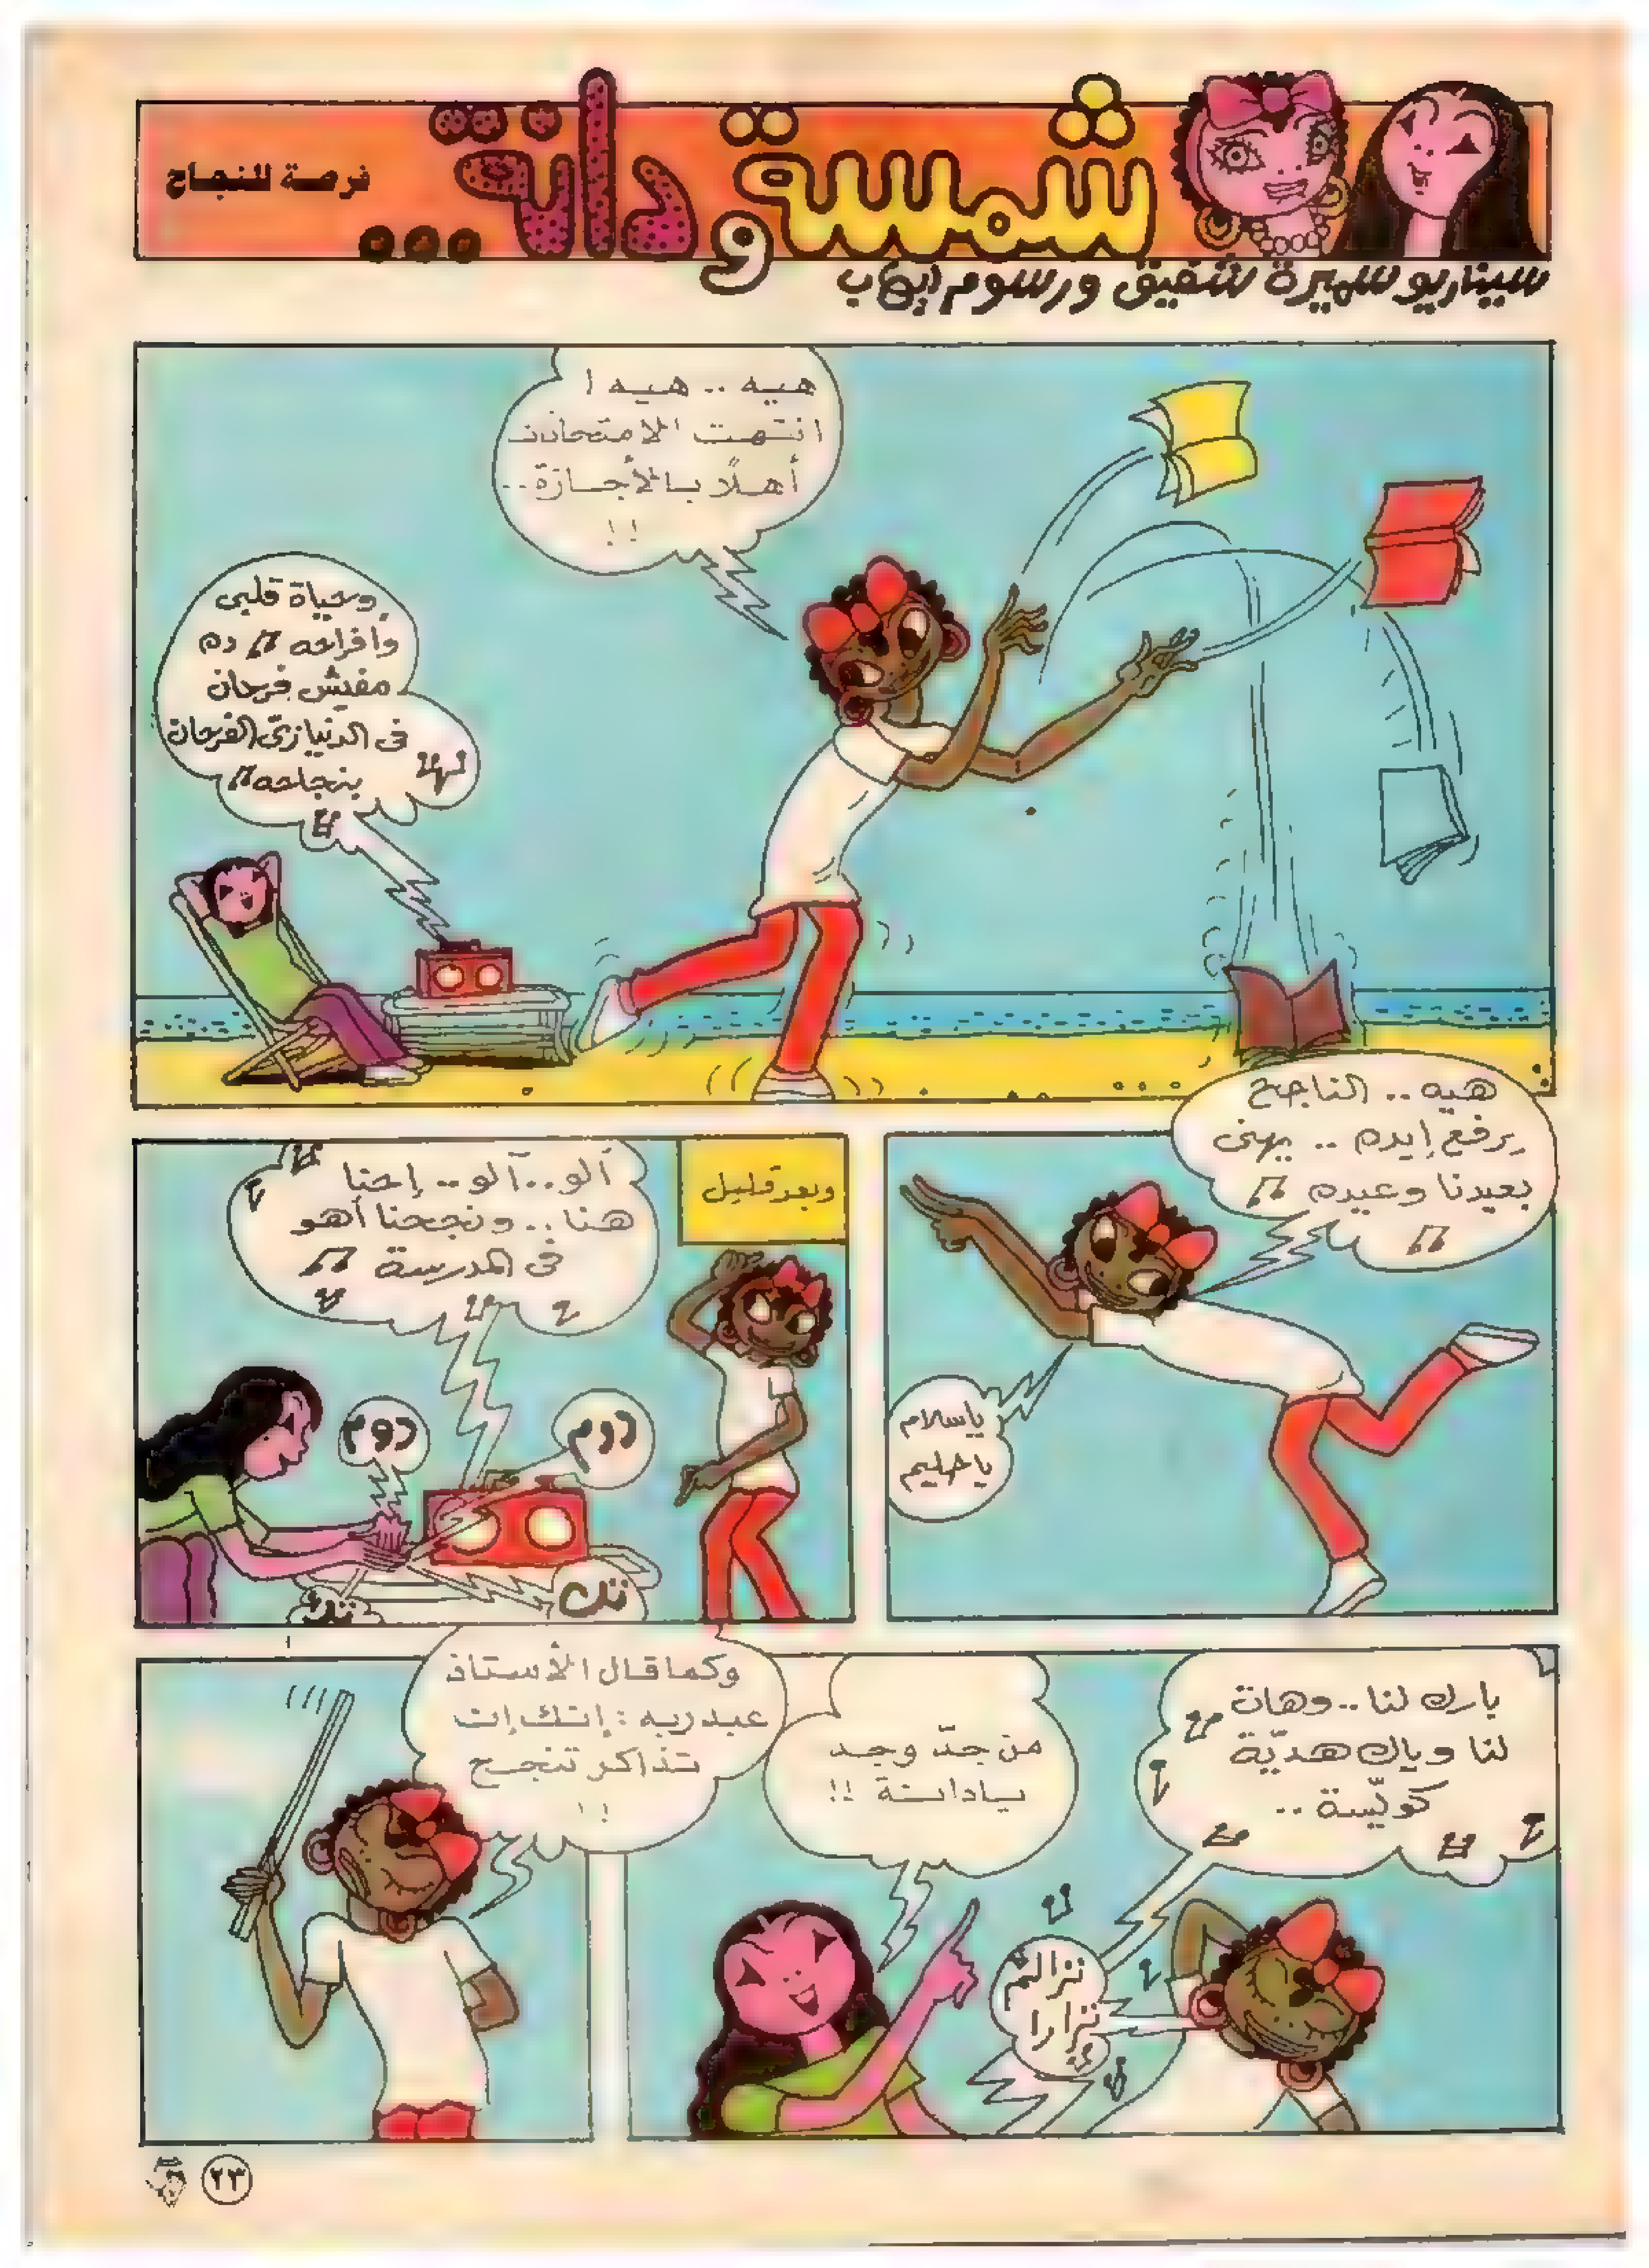 شمسة ودانة...
فرصة للنجاح
سيناريو سميرة شفيق ورسوم إيهاب
هيه .. هيه !
انتهت الامتحانات
أهلًا بالأجازة..
!!
وحياة قلبى
وأفراحه
مفيش فرحان
فى الدنيا زىّ الفرحان
بنجاحه
هيه .. الناجح
يرفع إيده .. يهنى
بعيدنا وعيده
ياسلام
ياحليم
وبعد قليل
ألو..آلو.. إحنا
هنا.. ونجحنا أهو
فى المدرسة
دوم
دوم
تك
تك
بارك لنا.. وهات
لنا وياك هديّة
كويّسة ..
من جدّ وجد
يادانة !!
وكما قال الأستاذ
عبدربه : إنك إن
تذاكر تنجح
!!
٢٣